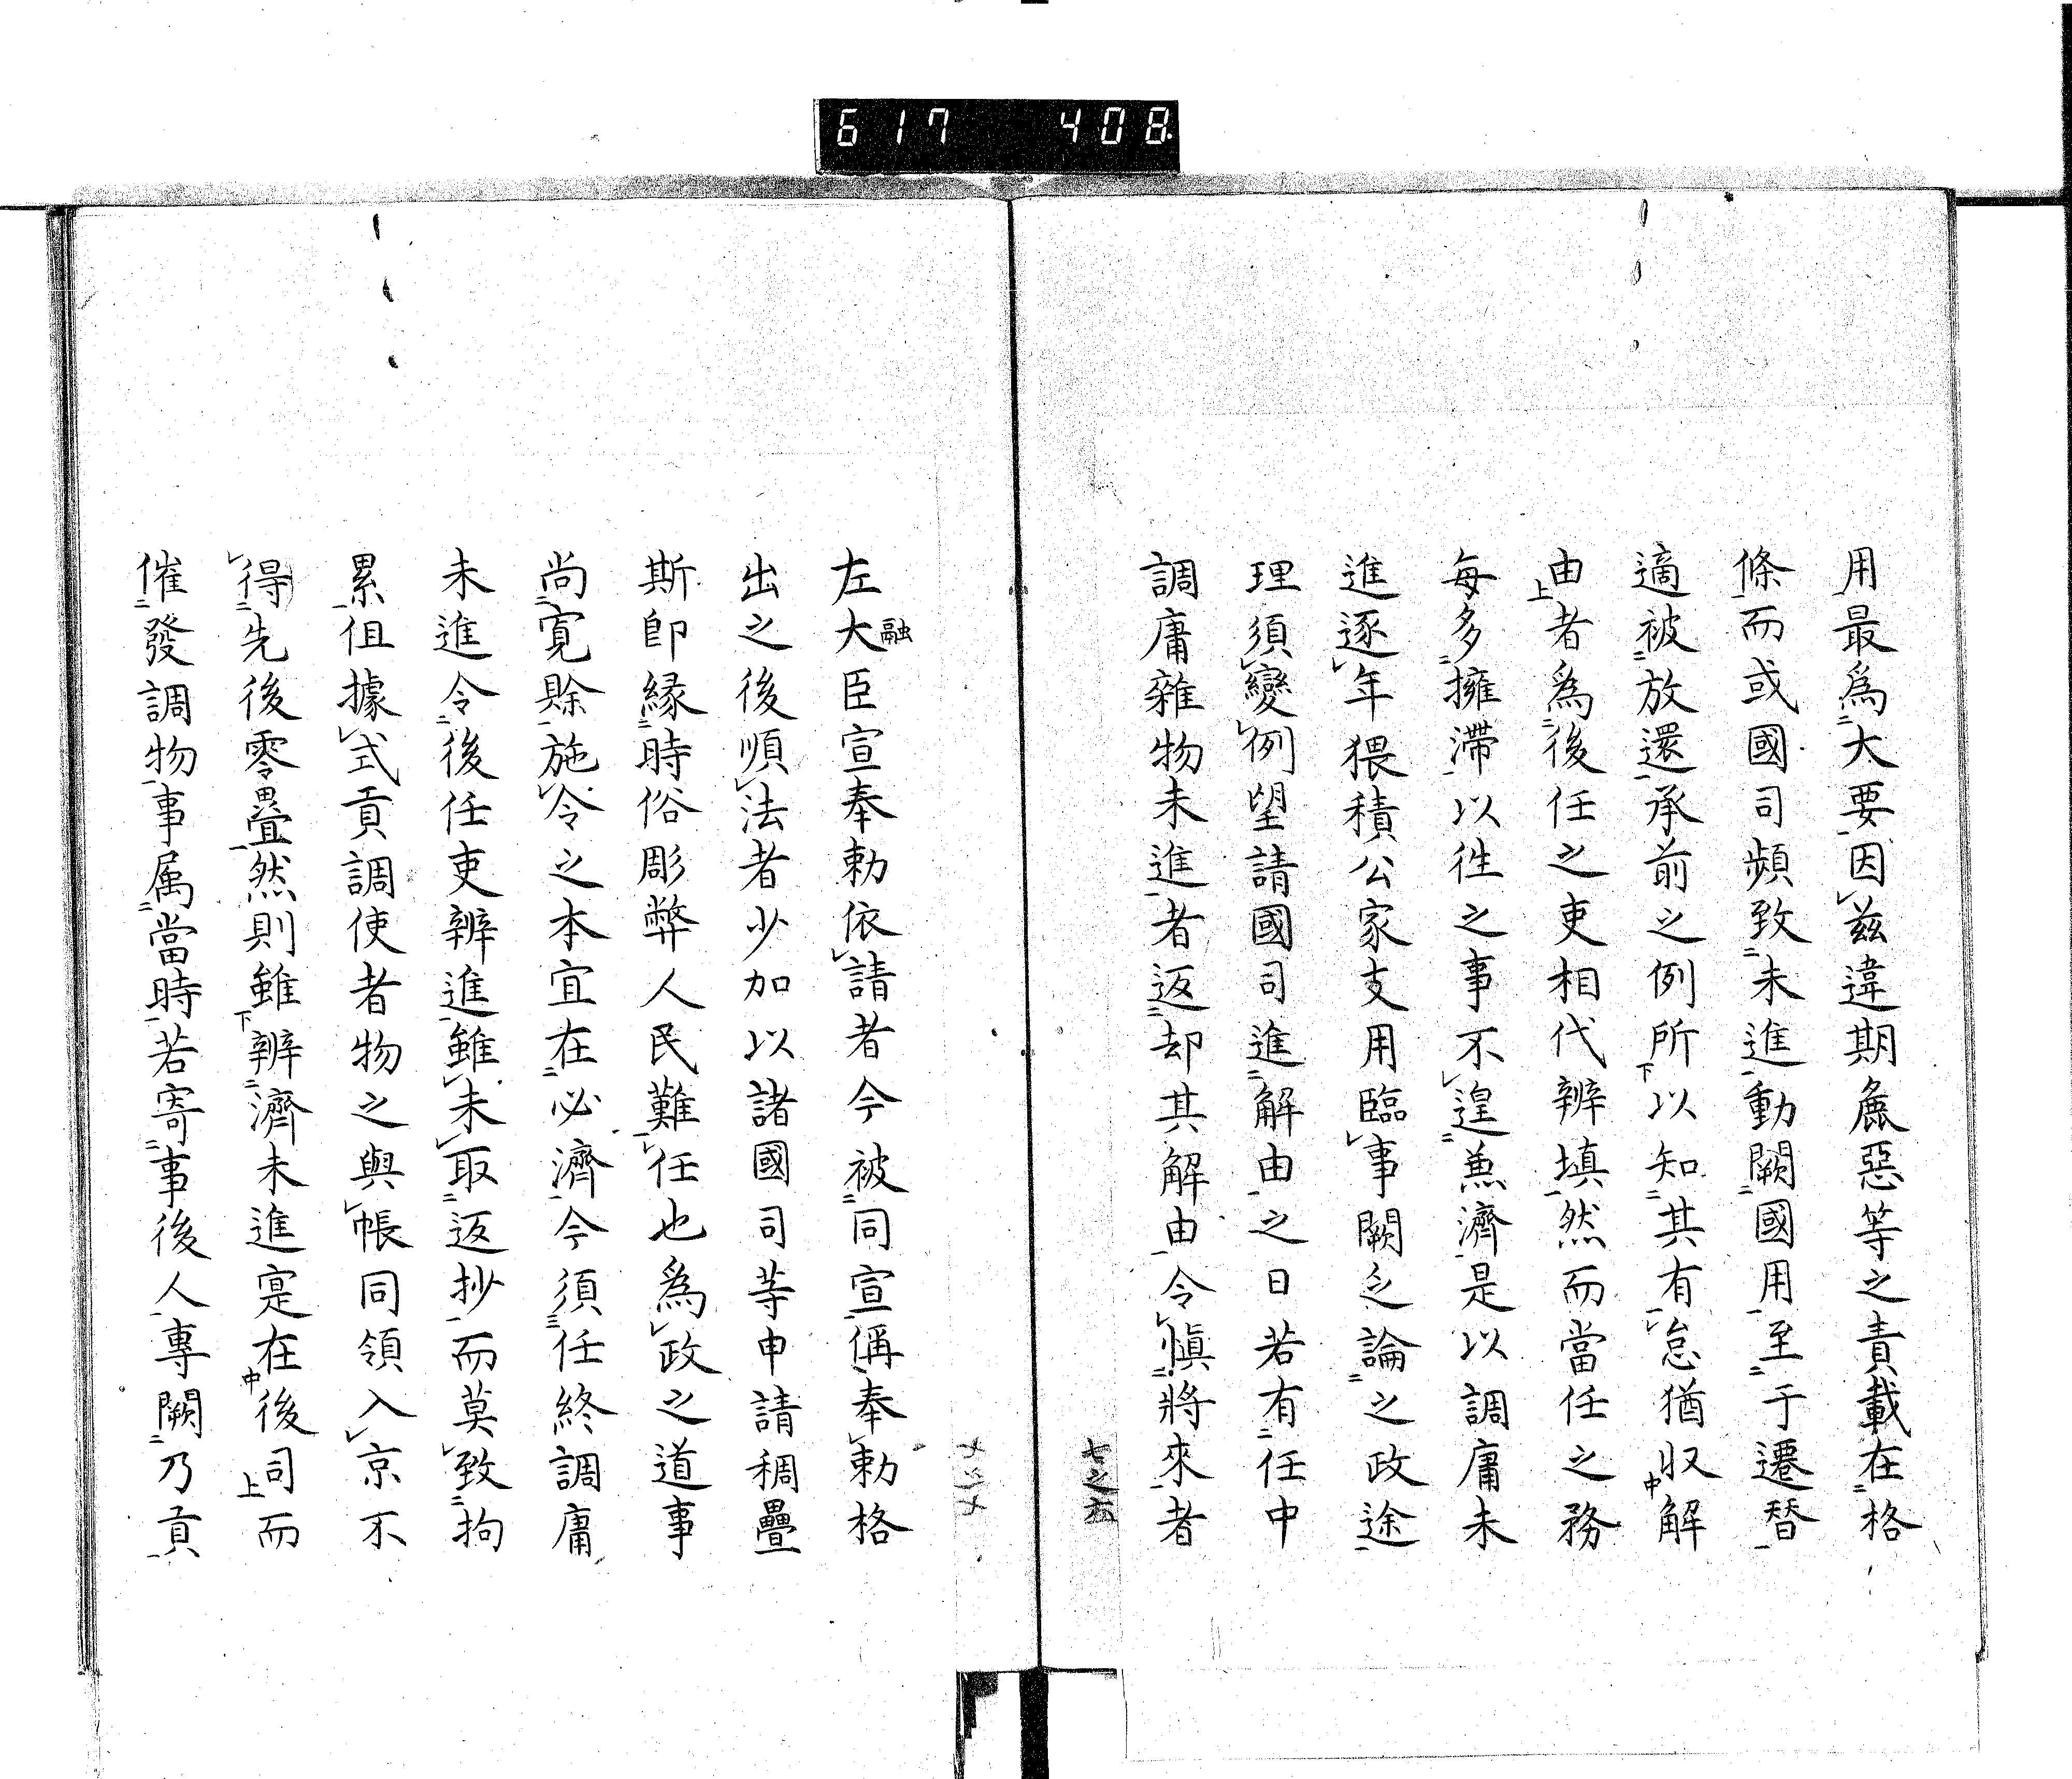 617 408
用最爲大要因茲違期麁惡等之責載在格
條而或國司頻致未進動闕國用至于遷替
適被放還承前之例所以知其有怠猶収解
由者爲後任之吏相代辨填然而當任之務
每多擁滯以徃之事不遑兼濟是以調庸未
進逐年猥積公家支用臨事闕乏論之政途
理須變例望請國司進解由之日若有任中
調庸雜物未進者返却其解由令愼將來者
七之六
左大臣宣奉勅依請者今被同宣偁奉勅格
融
出之後順法者少加以諸國司等申請稠疊
斯卽緣時俗彫弊人民難任也爲政之道事
尚寛賒施令之本宜在必濟今須任終調庸
未進令後任吏辨進雖未取返抄而莫致拘
累但據式貢調使者物之與帳同領入京不
得先後零疊然則雖辨濟未進寔在後司而
催發調物事属當時若寄事後人專闕乃貢